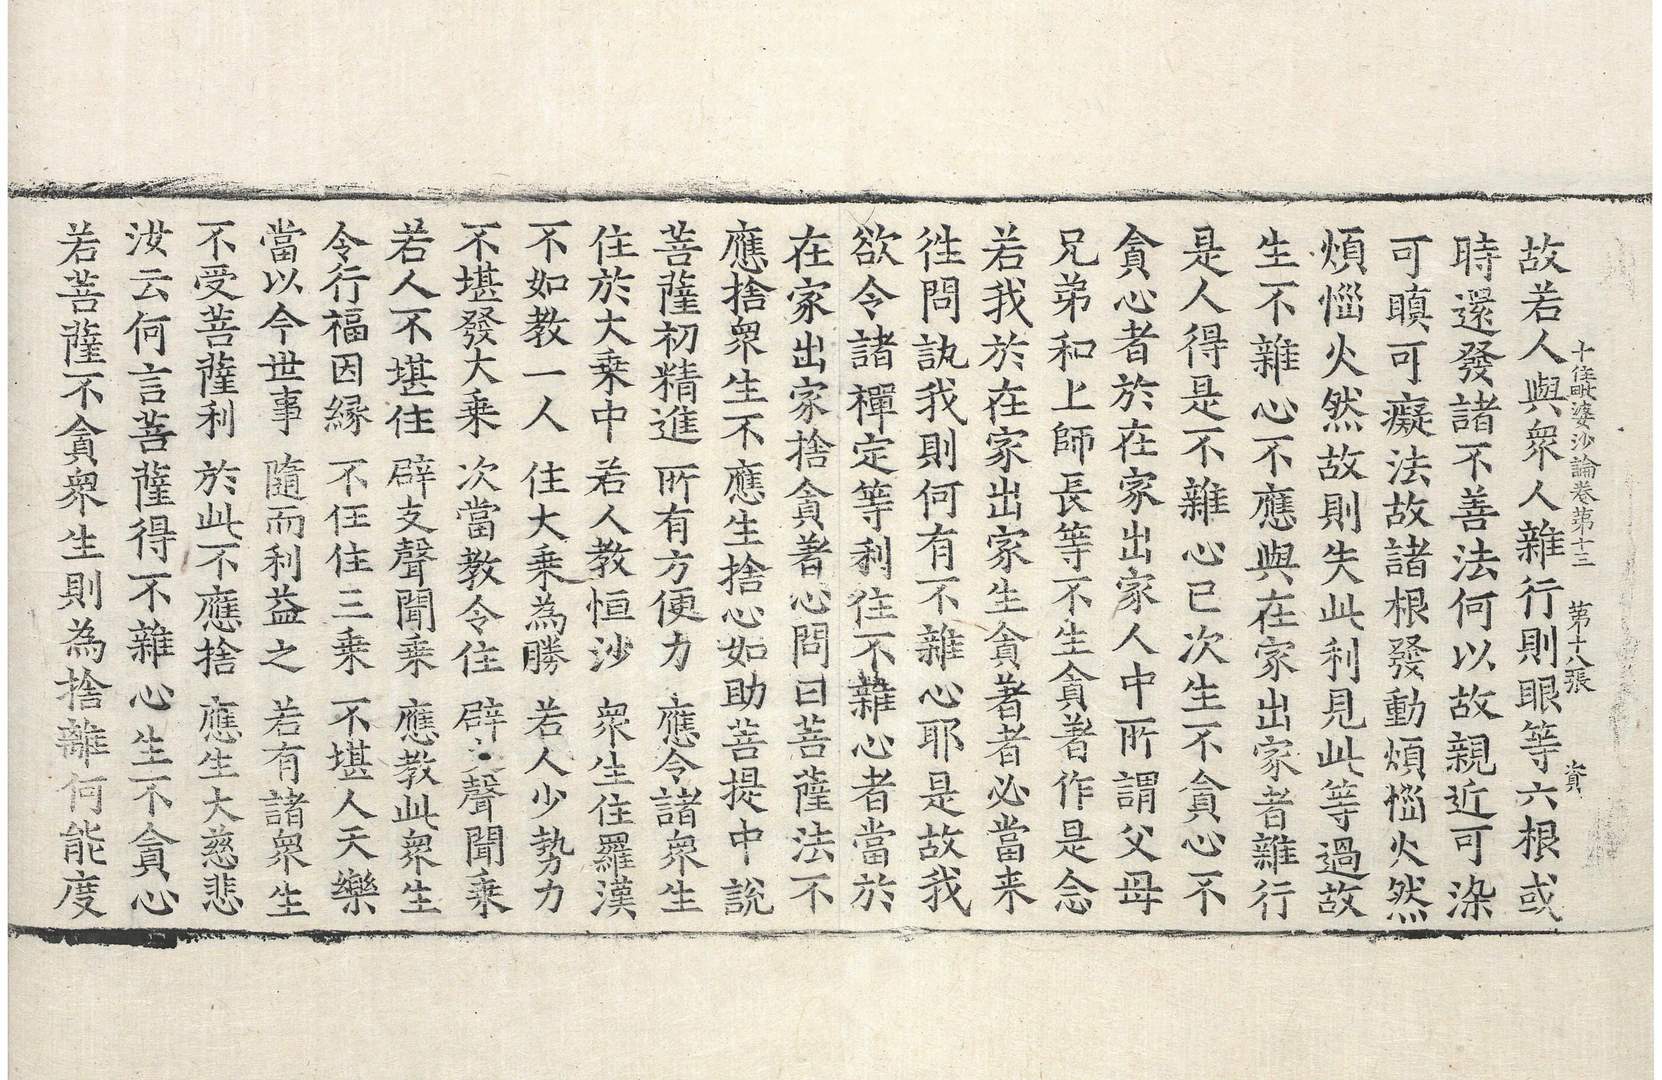 十住毗婆沙論卷第十三 第十八張 資
故若人與衆人雜行則眼等六根或
時還發諸不善法何以故親近可染
可瞋可癡法故諸根發動煩惱火然
煩惱火然故則失此利見此等過故
生不雜心不應與在家出家者雜行
是人得是不雜心已次生不貪心不
貪心者於在家出家人中所謂父母
兄弟和上師長等不生貪著作是念
若我於在家出家生貪著者必當来
徃問訊我則何有不雜心耶是故我
欲令諸禪定等利住不雜心者當於
在家出家捨貪著心問曰菩薩法不
應捨衆生不應生捨心如助菩提中說
菩薩初精進 所有方便力 應令諸衆生
住於大乗中 若人教恒沙 衆生住羅漢
不如教一人 住大乗為勝 若人少勢力
不堪發大乗 次當教令住 辟支聲聞乗
若人不堪住 辟支聲聞乗 應教此衆生
令行福因緣 不任住三乗 不堪人天樂
當以今世事 隨而利益之 若有諸衆生
不受菩薩利 於此不應捨 應生大慈悲
汝云何言菩薩得不雜心生不貪心
若菩薩不貪衆生則為捨離何能度